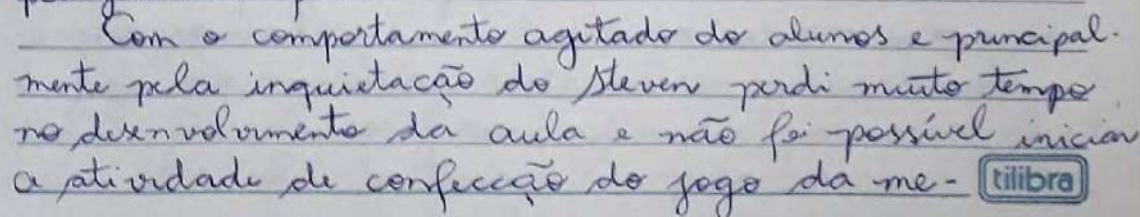 Com o comportamento agitado do alunos e principal-
mente pela inquietação do Steven perdi muito tempo
no desenvolvimento da aula e não foi possível iniciar
a atividade de confecção do jogo da me- tilibra